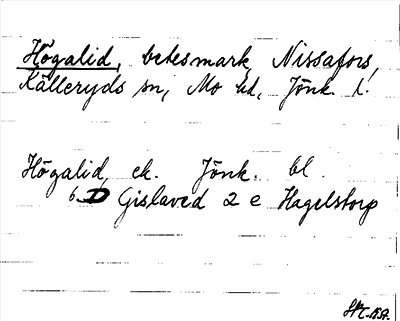 Högalid, betesmark, Nissafors,
Källeryds sn, Mo hd, Jönk. l.
Högalid, ek. Jönk. bl.
6 D Gislaved 2 e Hagelstorp